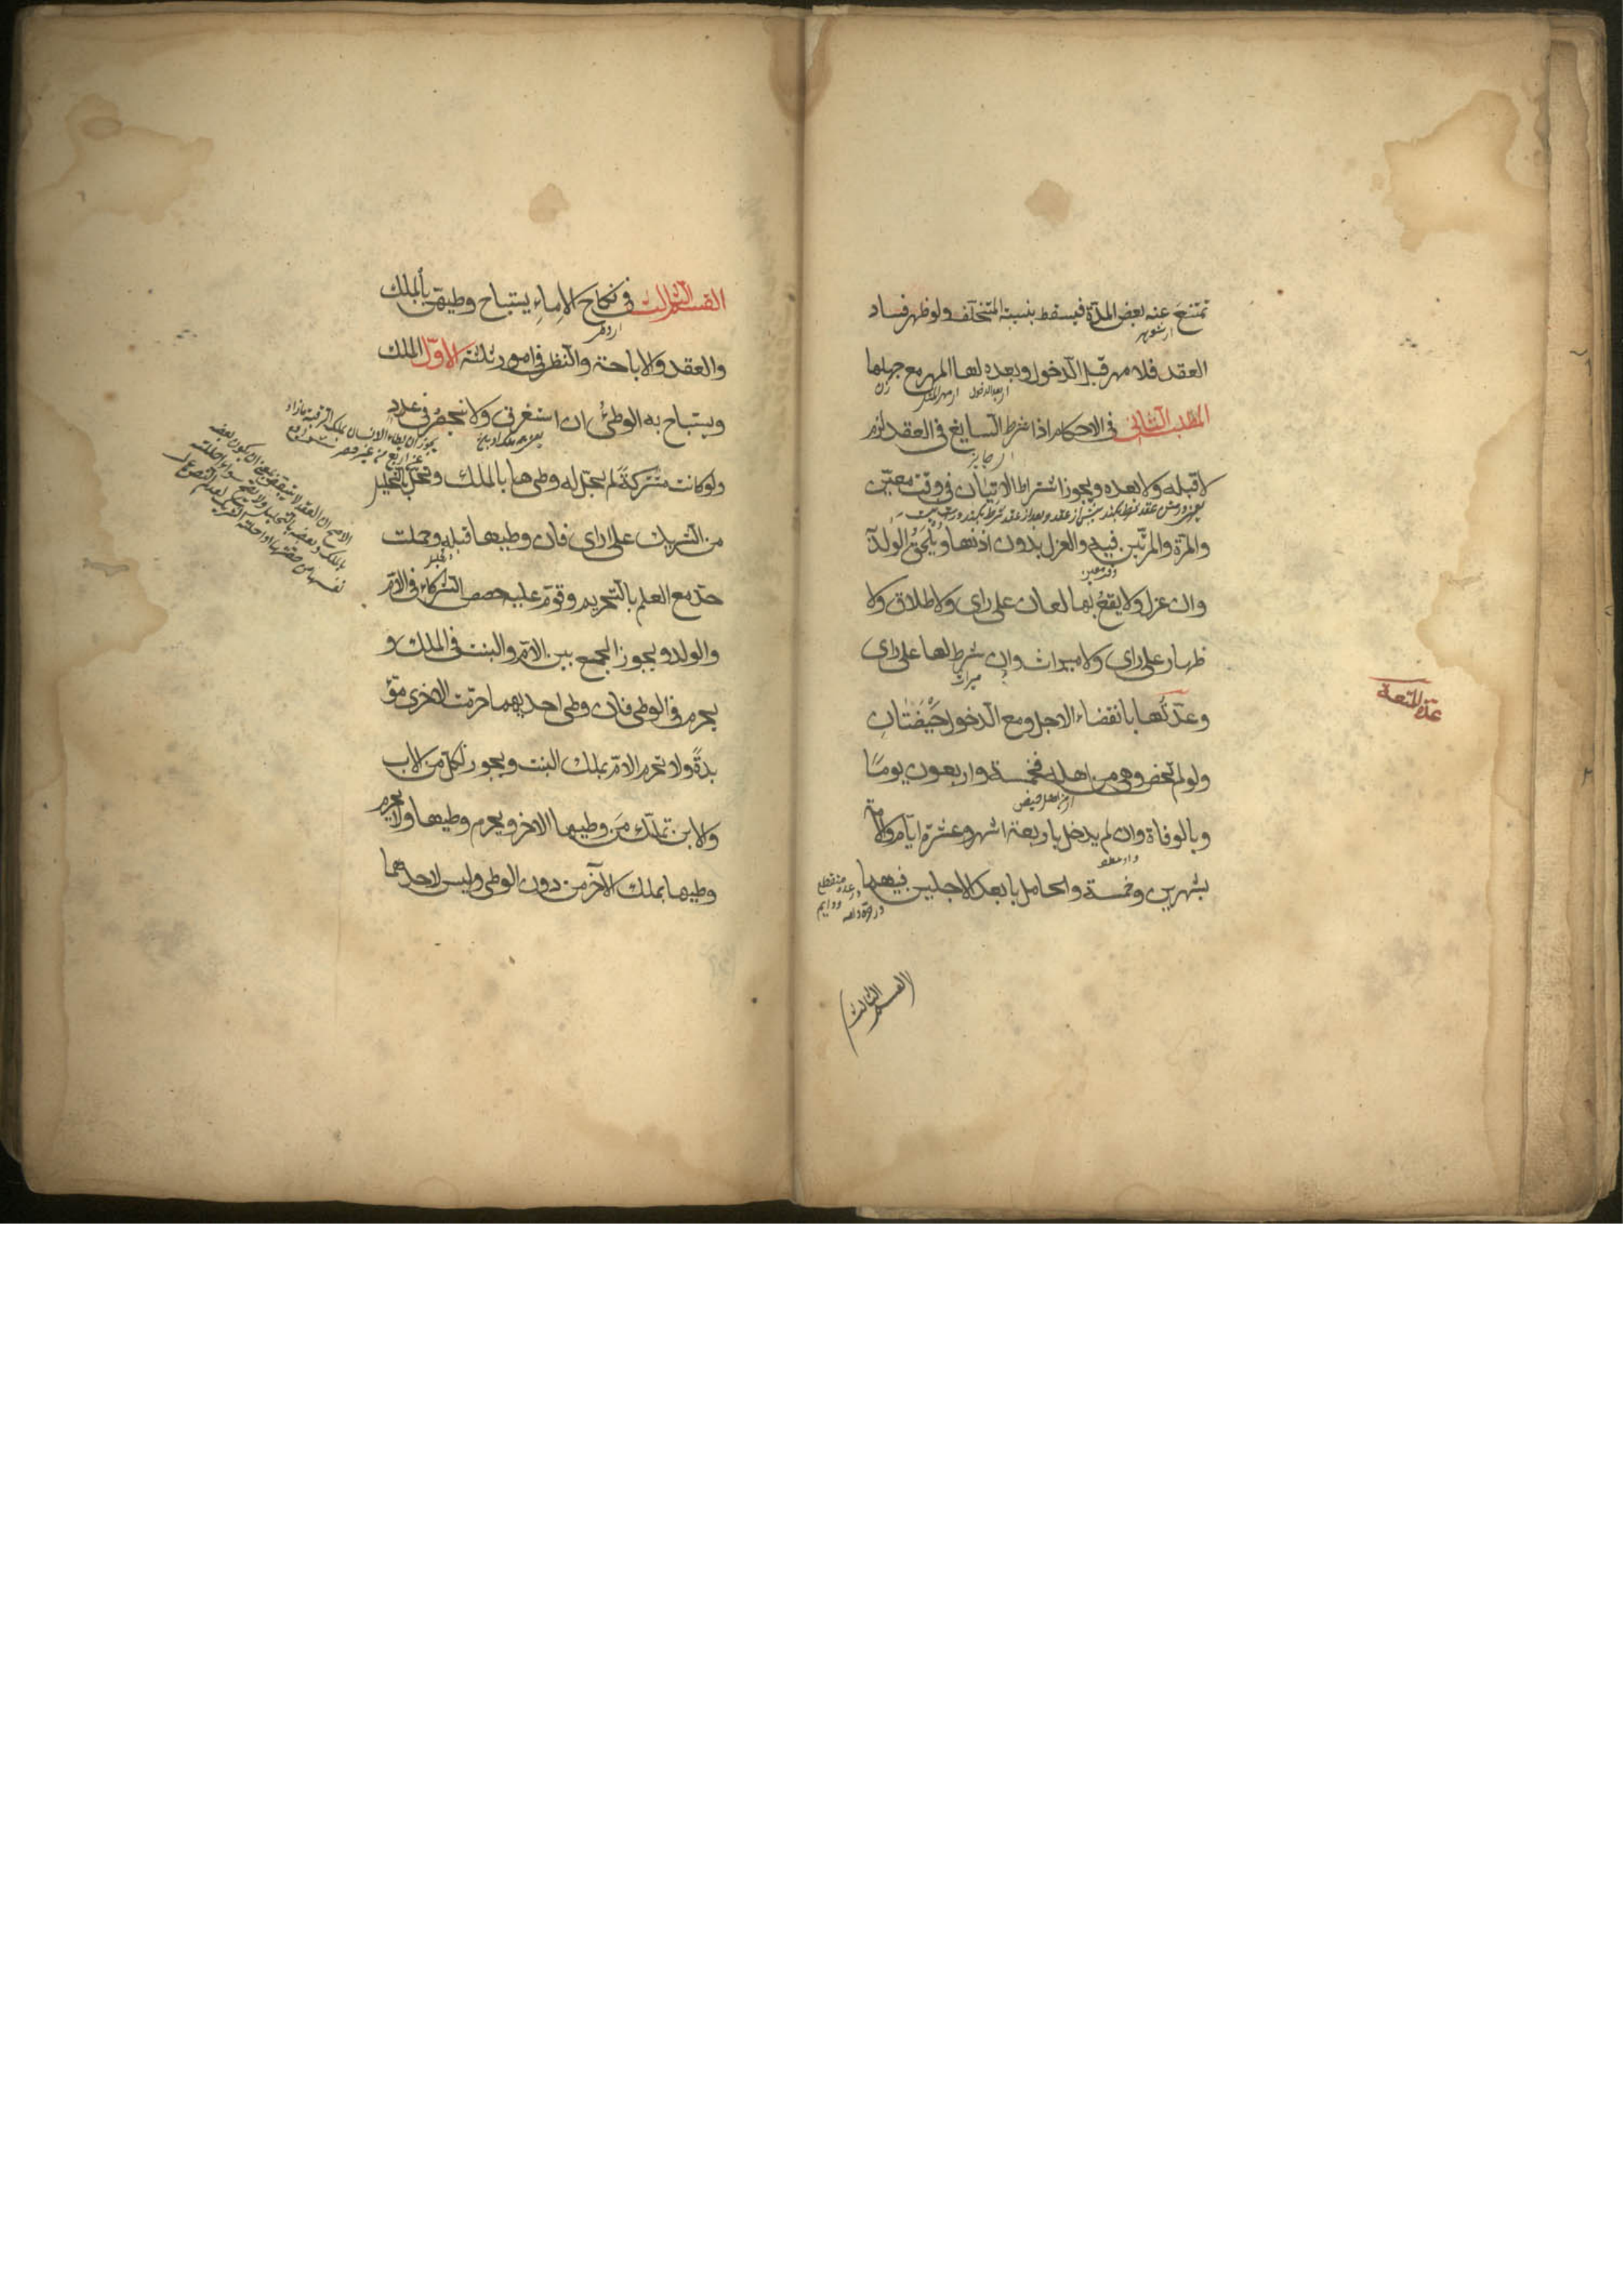 تمتنع عنه بعض المدة فيسقط بنسبة المتخلف ولو ظهر فساد
العقد فلا مهر قبل الدخول وبعده لها المهر مع جهلها
المطلب الثاني في الاحكام اذا شرط السايغ في العقد لزم
لا قبله ولا بعده ويجوز اشتراط الاتيان في وقت معين
والمرة والمرتين فيه والعزل بدون اذنها ويلحق الولد
وان عزل ولا يقع بها لعان على راى ولا طلاق ولا
ظهار على راى ولا ميراث وان شرط لها على راى
ميراث
وعدتها بانقضاء الاجل ومع الدخول حيضتان
عدة المتعة
ولو لم تحض وهى من اهله فخمسة واربعون يوما
وبالوفاة وان لم يدخل باربعة اشهر وعشرة ايام والامة
بشهرين وخمسة والحامل بابعد الاجلين فيهما
القسم الثالث
القسم الثالث في نكاح الاماء يستباح وطيهن بالملك
والعقد والاباحة والنظر في امور ثلثة الاول الملك
ويستباح به الوطئ ان استغرق ولا ينحصر في عدد
ولو كانت مشتركة لم يحل له وطى ها بالملك وتحل بالتحليل
من الشريك على راى فان وطيها قبله وحملت
حد مع العلم بالتحريم وقوم عليه حصص الشركاء في الام
والولد ويجوز الجمع بين الام والبنت في الملك و
يحرم في الوطى فان وطى احديهما حرمت الاخرى مؤ
بدة ولا تحرم الام بملك البنت ويجوز لكل من الاب
والابن تملك من وطيها الاخر ويحرم وطيها ولا يحرم
وطيها بملك الاخر من دون الوطى وليس لاحدهما